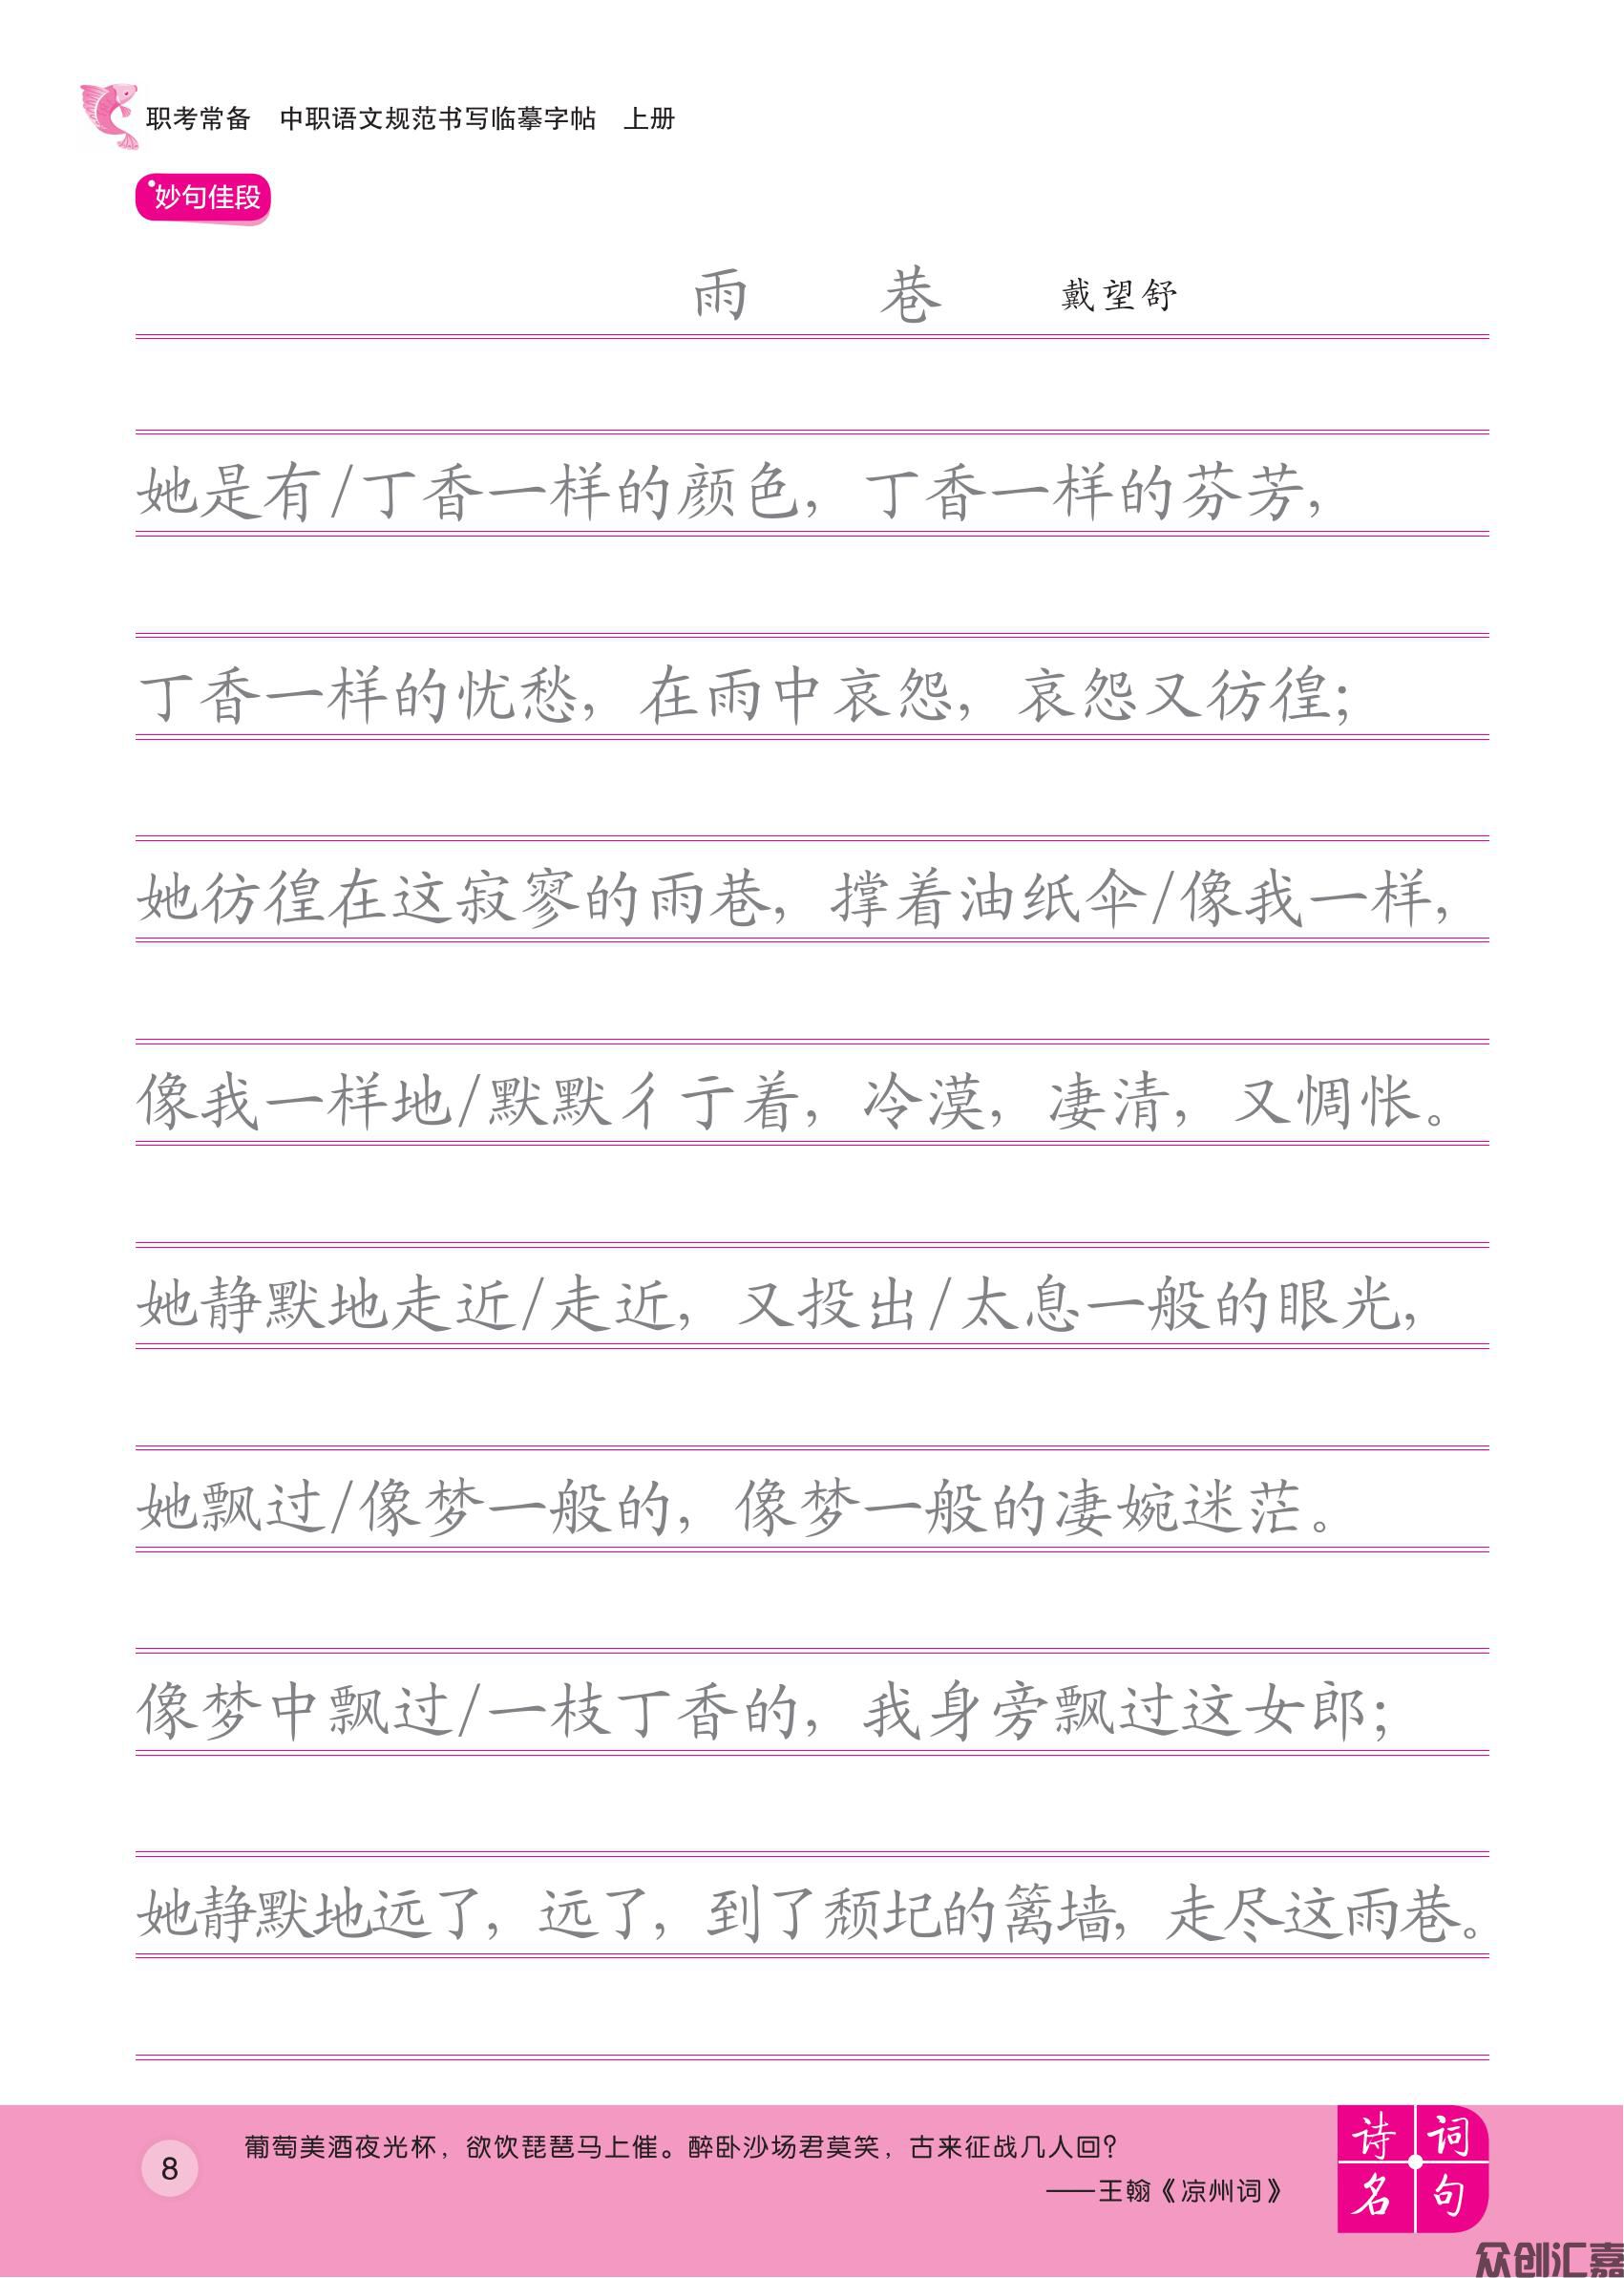 职考常备 中职语文规范书写临摹字帖 上册
妙句佳段
雨 巷 戴望舒
她是有/丁香一样的颜色，丁香一样的芬芳，
丁香一样的忧愁，在雨中哀怨，哀怨又彷徨；
她彷徨在这寂寥的雨巷，撑着油纸伞/像我一样，
像我一样地/默默彳亍着，冷漠，凄清，又惆怅。
她静默地走近/走近，又投出/太息一般的眼光，
她飘过/像梦一般的，像梦一般的凄婉迷茫。
像梦中飘过/一枝丁香的，我身旁飘过这女郎；
她静默地远了，远了，到了颓圮的篱墙，走尽这雨巷。
8
葡萄美酒夜光杯，欲饮琵琶马上催。醉卧沙场君莫笑，古来征战几人回？
——王翰《凉州词》
诗词
名句
众创汇嘉